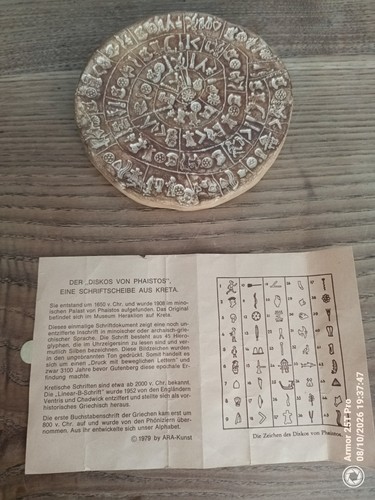 DER „DISKOS VON PHAISTOS",
EINE SCHRIFTSCHEIBE AUS KRETA.
Sie entstand um 1650 v. Chr. und wurde 1908 im mino-
ischen Palast von Phaistos aufgefunden. Das Original
befindet sich im Museum Heraklion auf Kreta.
Dieses einmalige Schriftdokument zeigt eine noch un-
entzifferte Inschrift in minoischer oder archaisch-grie-
chischer Sprache. Die Schrift besteht aus 45 Hiero-
glyphen, die im Uhrzeigersinn zu lesen sind und ver-
mutlich Silben bezeichnen. Diese Bildzeichen wurden
in den ungebrannten Ton gedrückt. Somit handelt es
sich um einen „Druck mit beweglichen Lettern" und
zwar 3100 Jahre bevor Gutenberg diese epochale Er-
findung machte.
Kretische Schriften sind etwa ab 2000 v. Chr. bekannt.
Die „Linear-B-Schrift" wurde 1952 von den Engländern
Ventris und Chadwick entziffert und stellte sich als vor-
historisches Griechisch heraus.
Die erste Buchstabenschrift der Griechen kam erst um
800 v. Chr. auf und wurde von den Phöniziern über-
nommen. Aus ihr entwickelte sich unser Alphabet.
© 1979 by ARA-Kunst
Die Zeichen des Diskos von Phaistos
Armor 25T Pro
08/10/2026 19:37:47